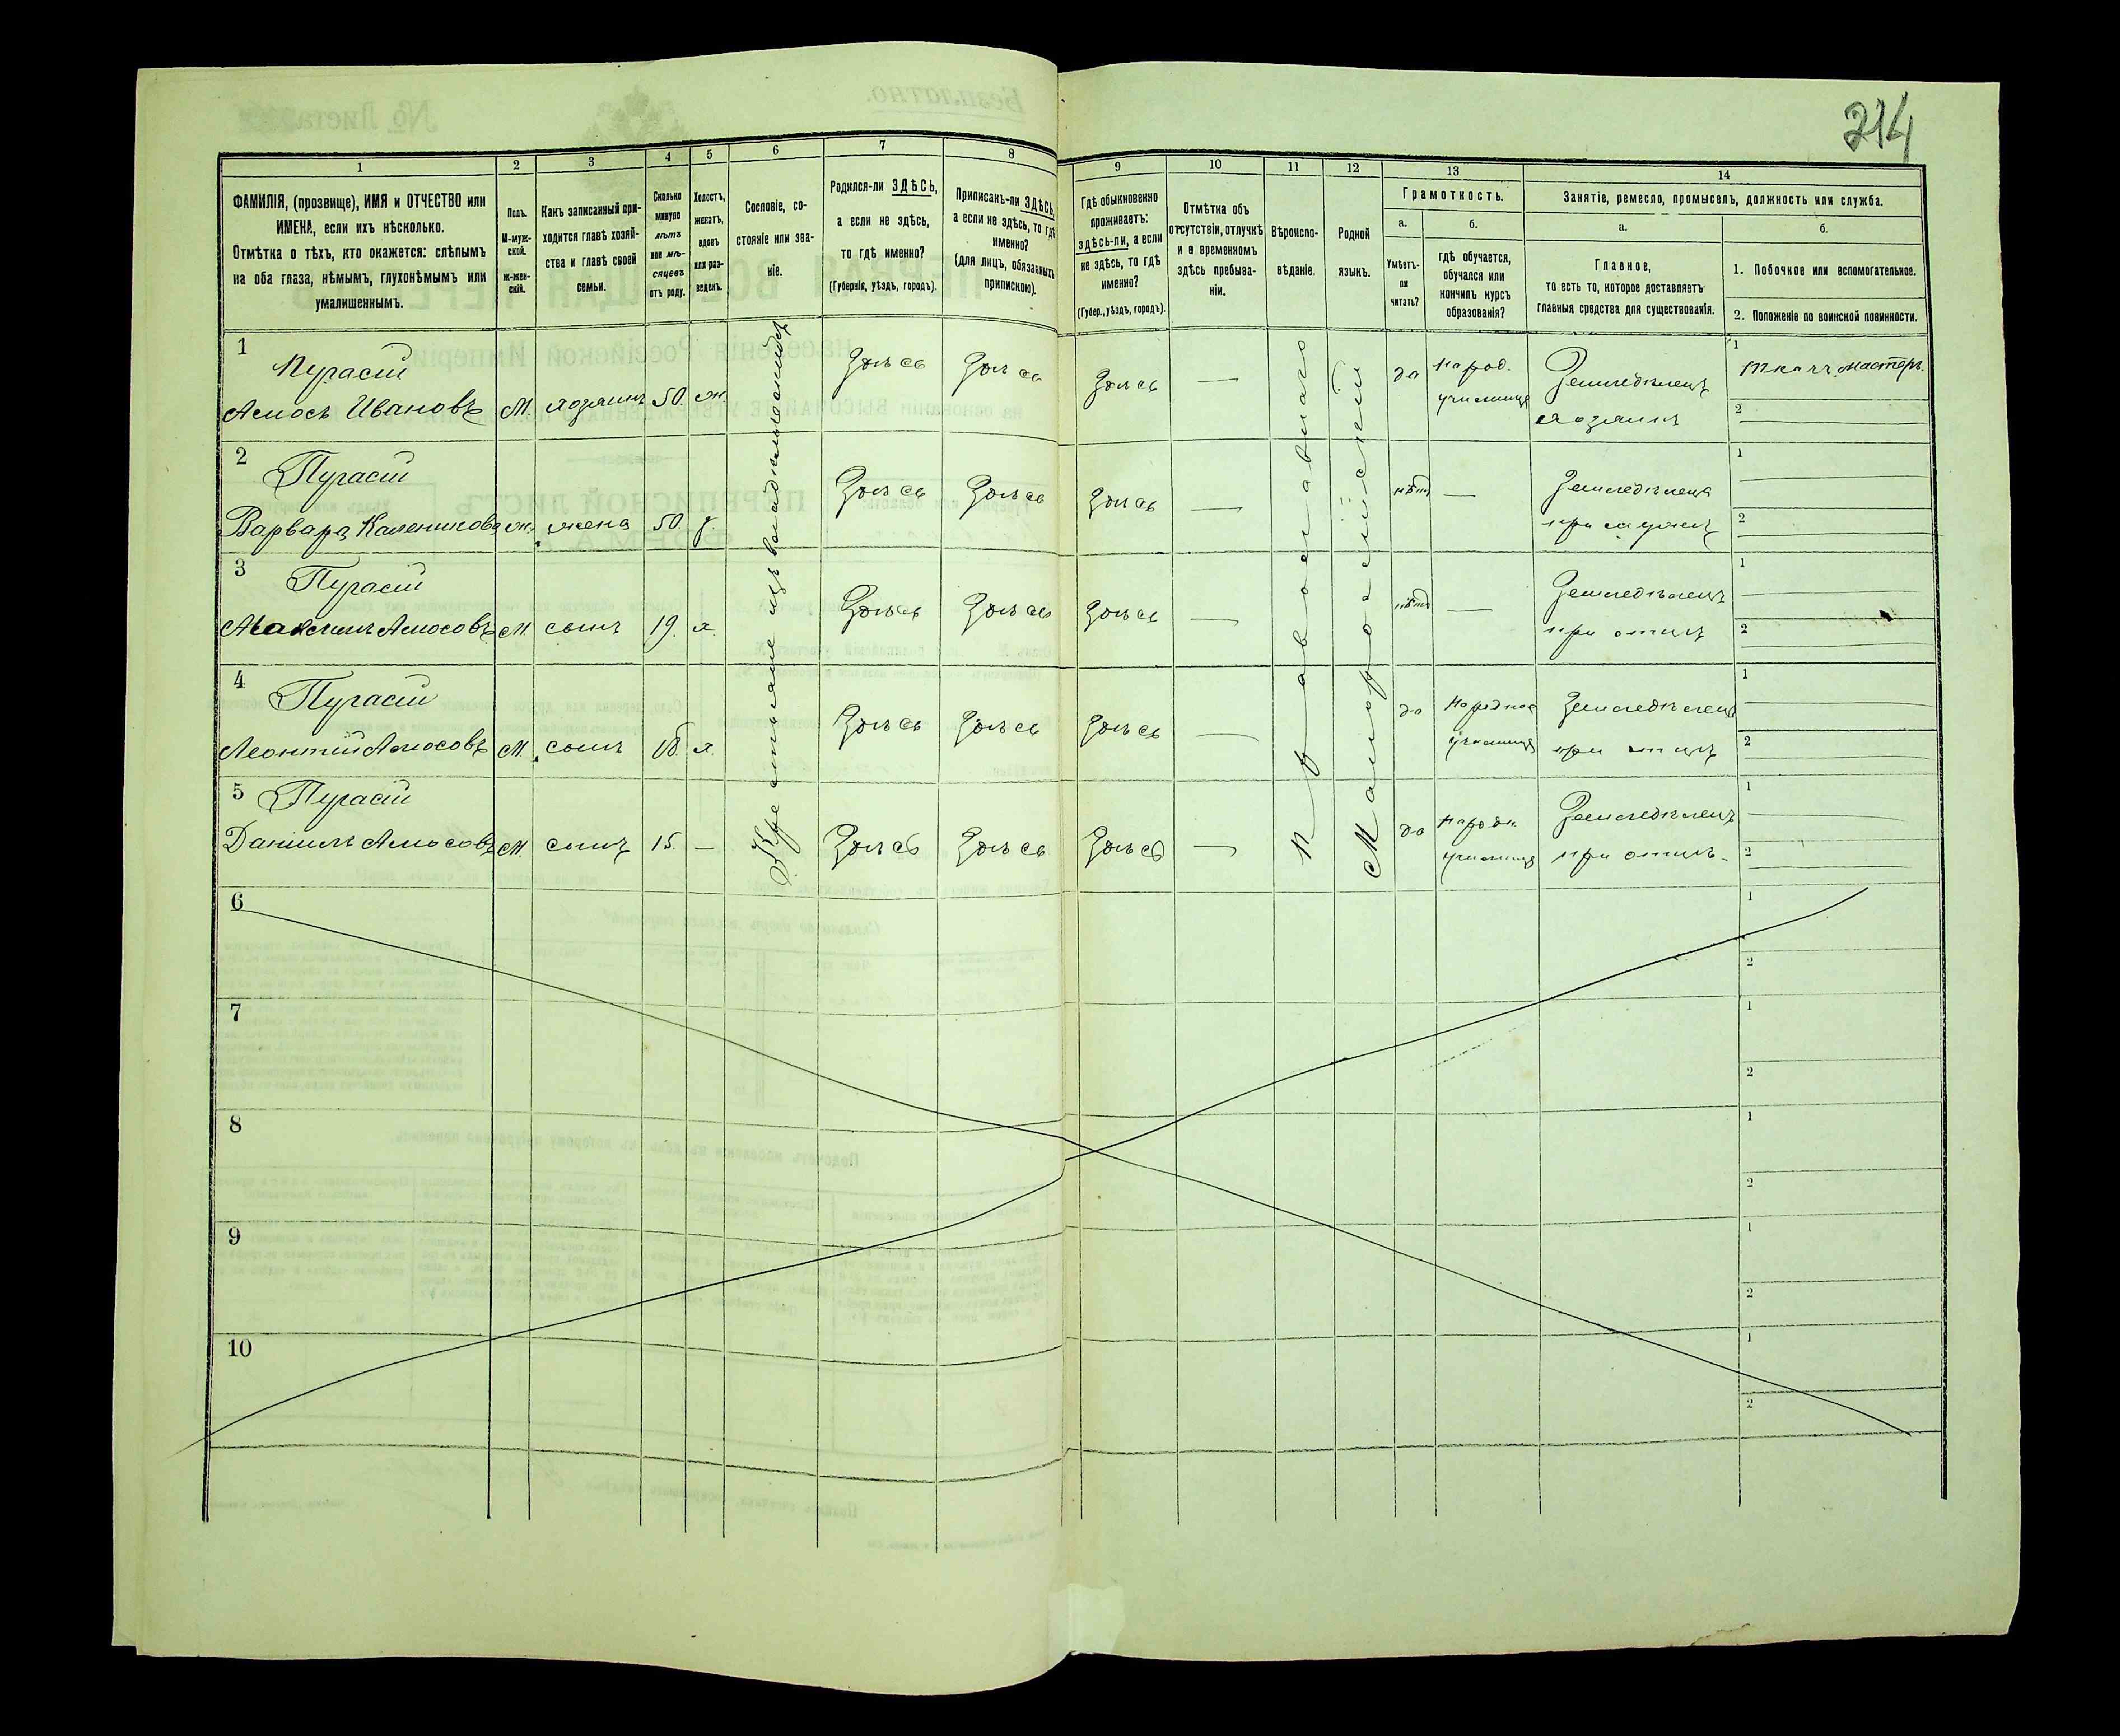 214
1
2
3
4
5
6
7
8
9
10
11
12
13
14
ФАМИЛІЯ, (прозвище), ИМЯ и ОТЧЕСТВО или
ИМЕНА, если ихъ нѣсколько.
Отмѣтка о тѣхъ, кто окажется: слѣпымъ
на оба глаза, нѣмымъ, глухонѣмымъ или
умалишеннымъ.
Полъ.
М-муж-
ской.
Ж-жен-
скій.
Какъ записанный при-
ходится главѣ хозяй-
ства и главѣ своей
семьи.
Сколько
минуло
лѣтъ
или мѣ-
сяцевъ
отъ роду.
Холостъ,
женатъ,
вдовъ
или раз-
веденъ.
Сословіе, со-
стояніе или зва-
ніе.
Родился-ли ЗДѢСЬ,
а если не здѣсь,
то гдѣ именно?
(Губернія, уѣздъ, городъ).
Приписанъ-ли ЗДѢСЬ,
а если не здѣсь, то гдѣ
именно?
(для лицъ, обязанныхъ
припискою).
Гдѣ обыкновенно
проживаетъ:
здѣсь-ли, а если
не здѣсь, то гдѣ
именно?
(Губер., уѣздъ, городъ).
Отмѣтка объ
отсутствіи, отлучкѣ
и о временномъ
здѣсь пребыва-
ніи.
Вѣроиспо-
вѣданіе.
Родной
языкъ.
Грамотность.
а.
Умѣетъ-
ли
читать?
б.
гдѣ обучается,
обучался или
кончилъ курсъ
образованія?
Занятіе, ремесло, промыселъ, должность или служба.
а.
Главное,
то есть то, которое доставляетъ
главныя средства для существованія.
б.
1. Побочное или вспомогательное.
2. Положеніе по воинской повинности.
Крестьяне изъ
Православнаго
Малороссійскій
1
Пугасій
Амосъ Ивановъ М. хозяинъ 50. ж Здѣсь Здѣсь Здѣсь — да народ. училище Земледѣлецъ хозяинъ
1 ткачъ мастеръ
2 —
2
Пугасій
Варвара ж. жена 50. з. Здѣсь Здѣсь Здѣсь — нѣтъ — при мужѣ
1 —
2 —
3
Пугасій
Максимъ Амосовъ М. сынъ 19. х. Здѣсь Здѣсь Здѣсь — нѣтъ — Земледѣлецъ при отцѣ
1 —
2 —
4
Пугасій
Леонтій Амосовъ М. сынъ 18. х. Здѣсь Здѣсь Здѣсь — да народное училище Земледѣлецъ при отцѣ
1 —
2 —
5
Пугасій
Даніилъ Амосовъ М. сынъ 15. — Здѣсь Здѣсь Здѣсь — да народн училище Земледѣлецъ при отцѣ.
1 —
2 —
6
1
2
7
1
2
8
1
2
9
1
2
10
1
2